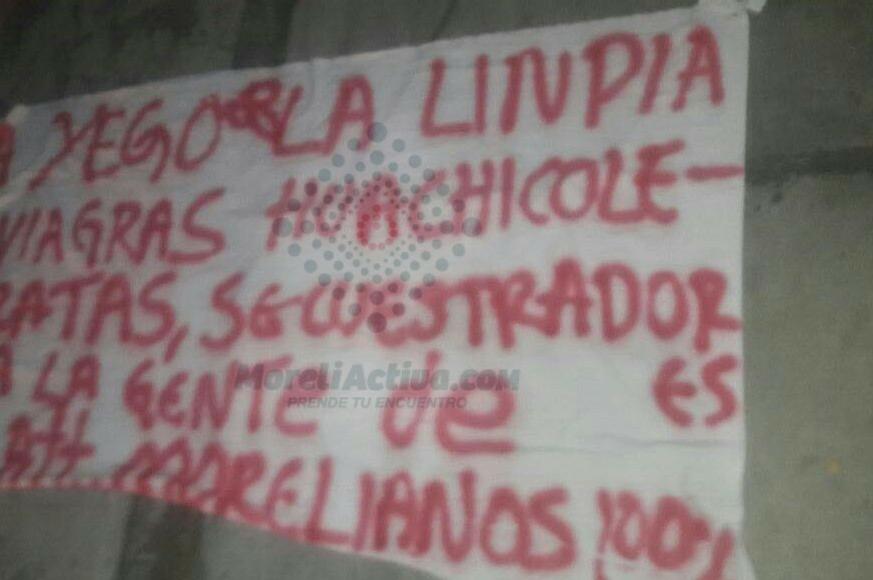 A YEGO LA LINPIA
VIAGRAS HUACHICOLE-
RATAS, SECUESTRADOR
A LA GENTE de ES
Att MORELIANOS 100%
MoreliActiva.com
PRENDE TU ENCUENTRO